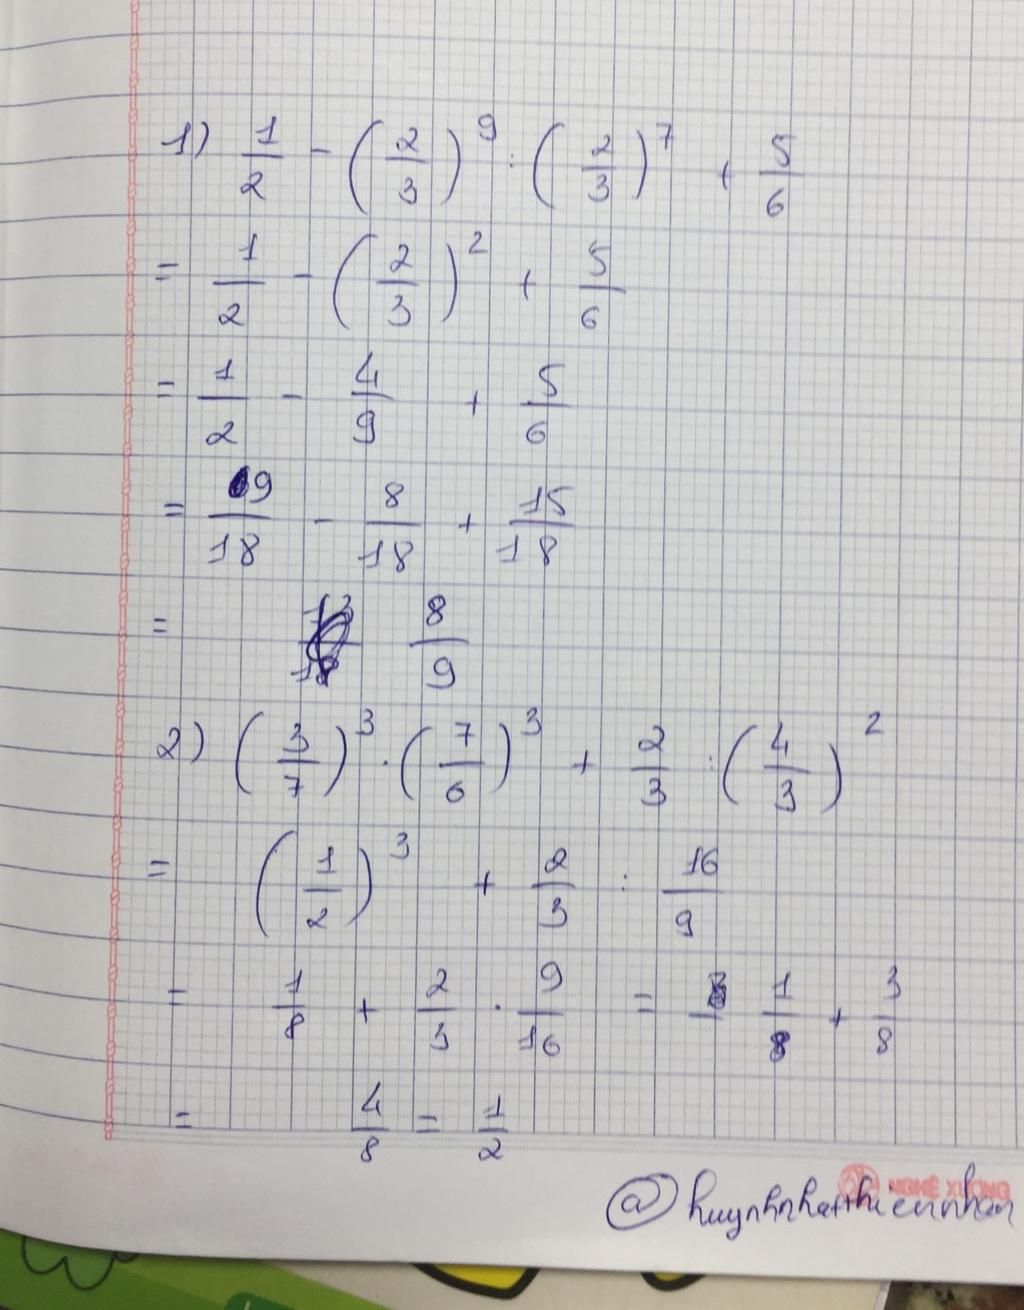 1) 1/2 - (2/3)^9 : (2/3)^7 + 5/6
= 1/2 - (2/3)^2 + 5/6
= 1/2 - 4/9 + 5/6
= 9/18 - 8/18 + 15/18
= 8/9
2) (3/7)^3 . (7/6)^3 + 2/3 : (4/3)^2
= (1/2)^3 + 2/3 : 16/9
= 1/8 + 2/3 . 9/16 = 1/8 + 3/8
= 4/8 = 1/2
NGHỆ XƯƠNG
@huynhnhatthiennhan